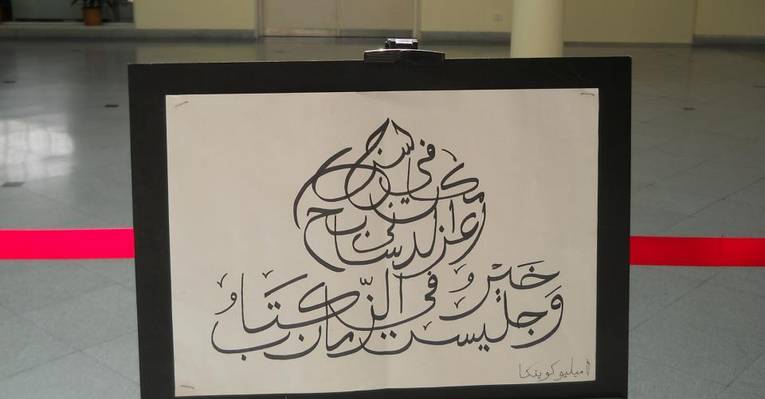 أعز مكان في الدنى سرج سابح
وخير جليس في الزمان كتاب
اميليو كوينكا